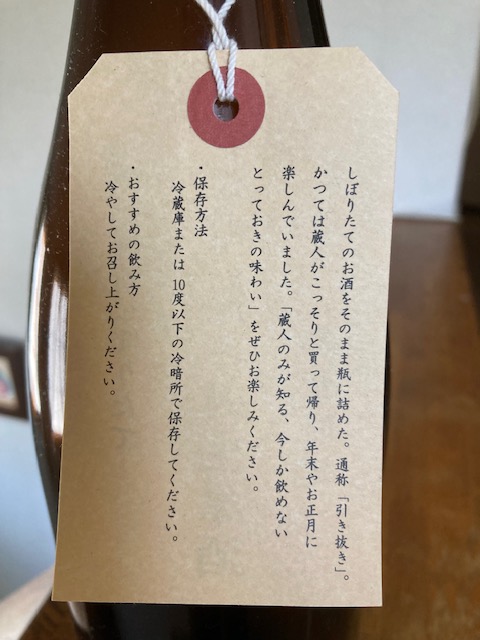 しぼりたてのお酒をそのまま瓶に詰めた。通称「引き抜き」。
かつては蔵人がこっそりと買って帰り、年末やお正月に
楽しんでいました。「蔵人のみが知る、今しか飲めない
とっておきの味わい」をぜひお楽しみください。
・保存方法
冷蔵庫または10度以下の冷暗所で保存してください。
・おすすめの飲み方
冷やしてお召し上がりください。